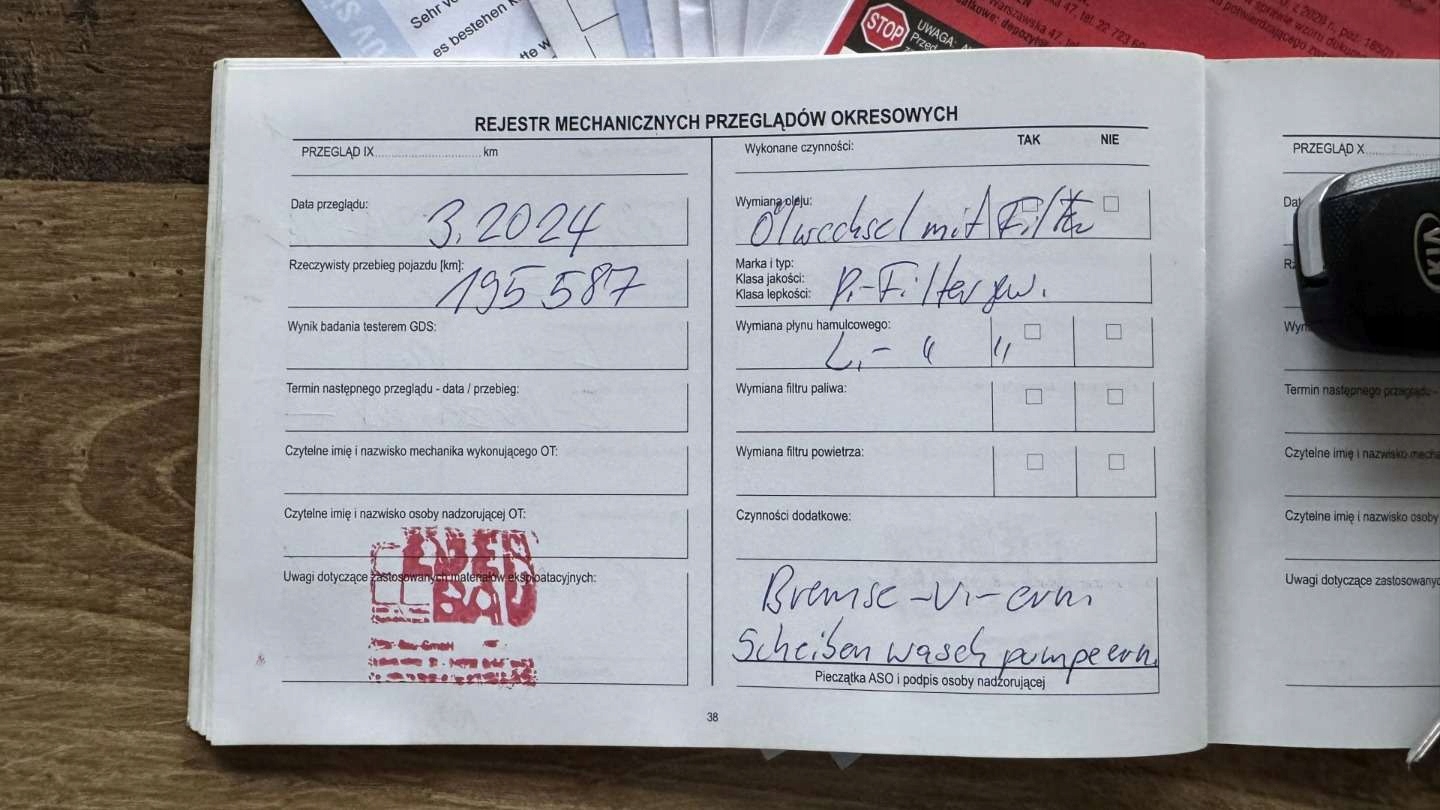 Sehr v
es bestehen K
tte w
STOP
UWAGA:
REJESTR MECHANICZNYCH PRZEGLĄDÓW OKRESOWYCH
PRZEGLĄD IX.............................. km
Data przeglądu:
3.2024
Rzeczywisty przebieg pojazdu [km]:
195 587
Wynik badania testerem GDS:
Termin następnego przeglądu - data / przebieg:
Czytelne imię i nazwisko mechanika wykonującego OT:
Czytelne imię i nazwisko osoby nadzorującej OT:
Uwagi dotyczące zastosowanych materiałów eksploatacyjnych:
Wykonane czynności:
TAK NIE
Wymiana oleju:
Ölwechsel mit Filter
Marka i typ:
Klasa jakości:
Klasa lepkości:
P.-Filter gew.
Wymiana płynu hamulcowego:
L.- " "
Wymiana filtru paliwa:
Wymiana filtru powietrza:
Czynności dodatkowe:
Bremse -V.- ern.
Scheiben wasch pumpe ern.
Pieczątka ASO i podpis osoby nadzorującej
38
PRZEGLĄD X
KIA
Termin następnego przeglądu -
Czytelne imię i nazwisko mecha
Czytelne imię i nazwisko osoby
Uwagi dotyczące zastosowany